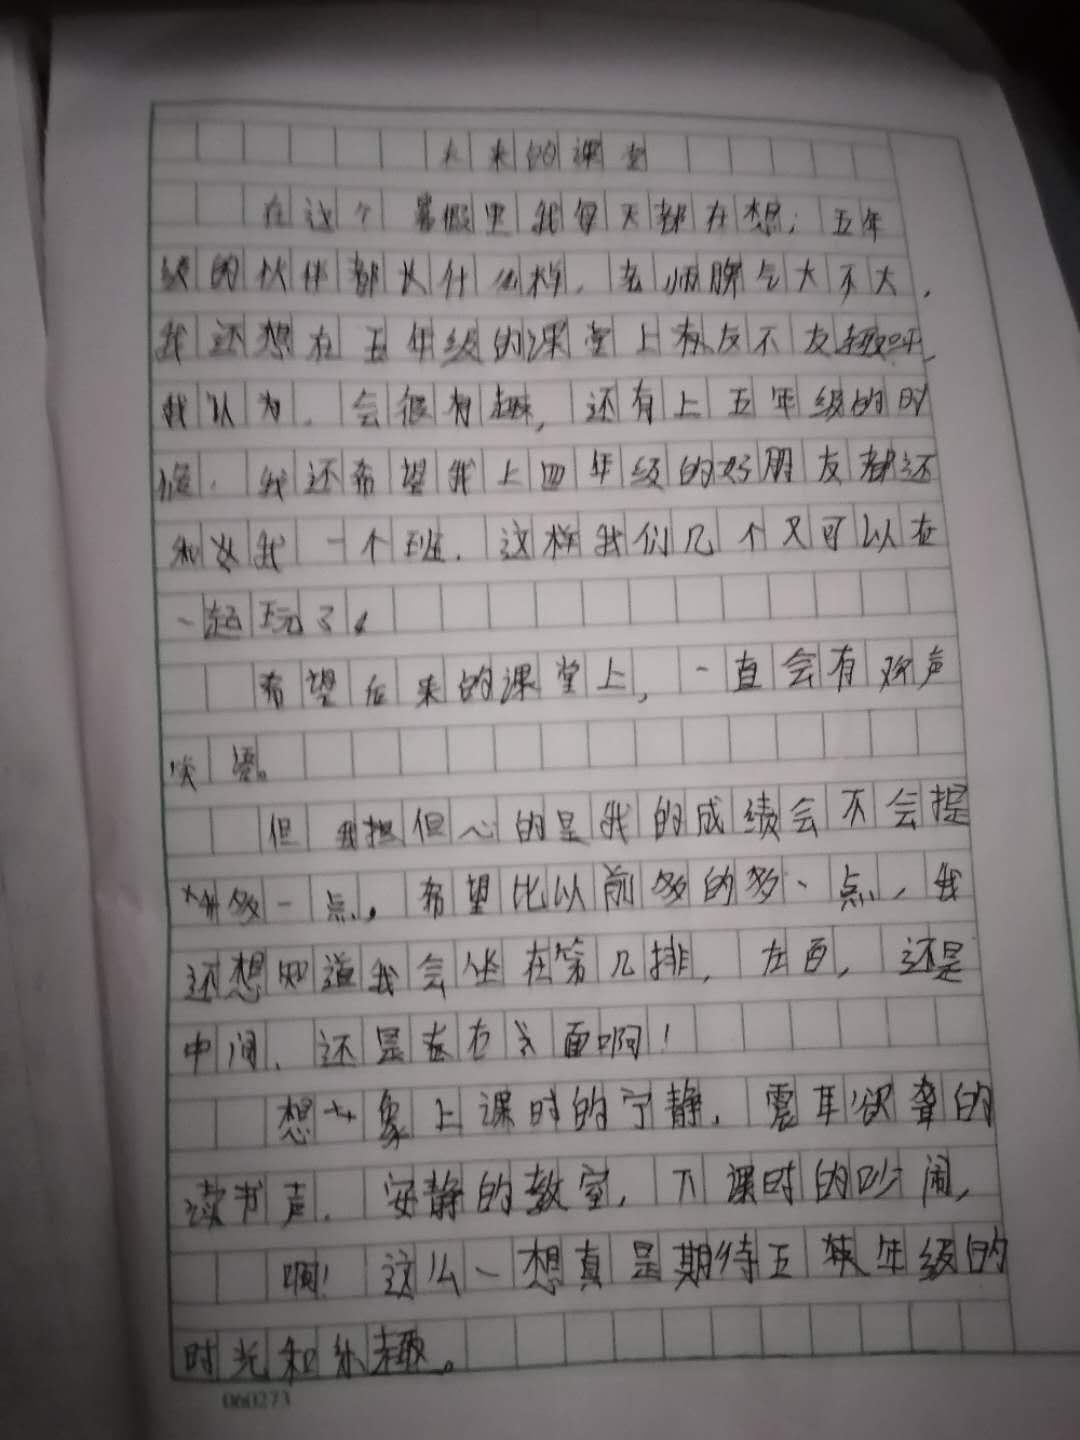 未来的课堂
在这个暑假里我每天都在想，五年
级的伙伴都长什么样，老师脾气大不大，
我还想在五年级的课堂上有友不友趣呀，
我认为，会很有趣，还有上五年级的时
候，我还希望我上四年级的好朋友都还
和我一个班，这样我们几个又可以在
一起玩了。
希望后来的课堂上，一直会有欢声
笑语。
但我担但心的是我的成绩会不会提
多一点，希望比以前多的多一点，我
还想知道我会坐在第几排，左面，还是
中间，还是在右面啊！
想象上课时的宁静，震耳欲聋的
读书声，安静的教室，下课时的吵闹，
啊！这么一想真是期待五年级的
时光和乐趣。
060273